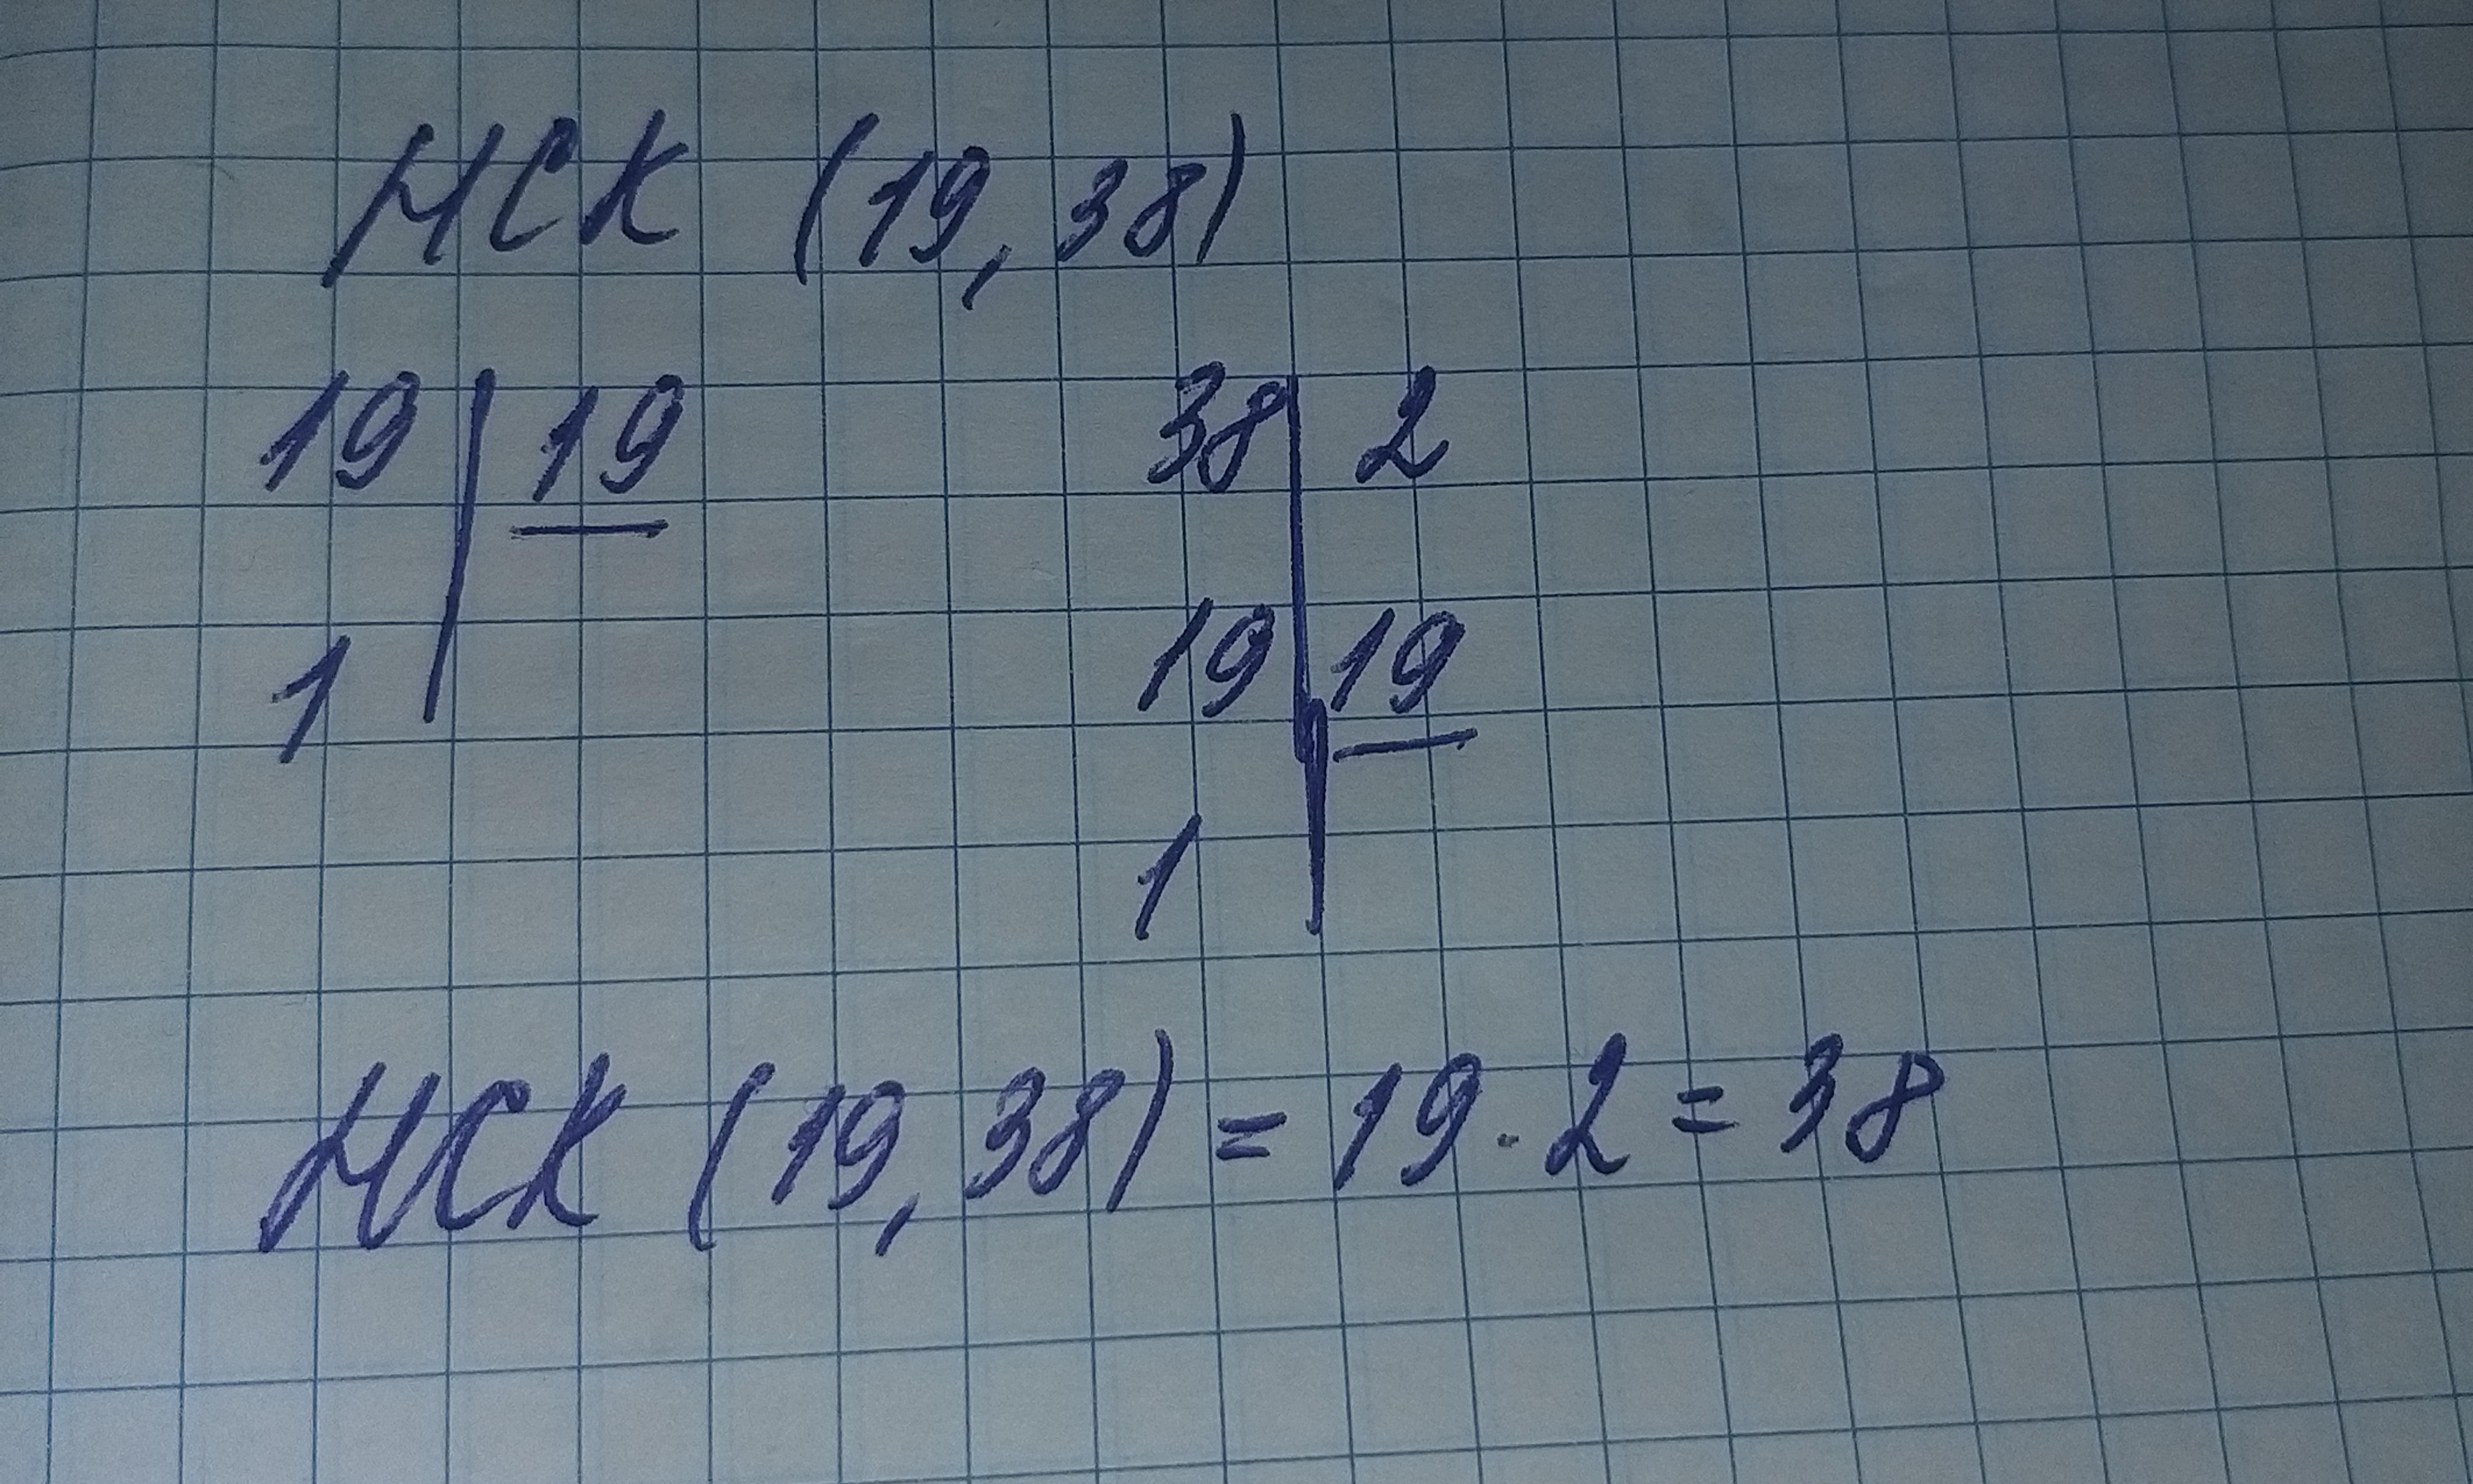 НСК (19, 38)
19 | 19 38 | 2
1 | 19 | 19
1 |
НСК (19, 38) = 19 · 2 = 38